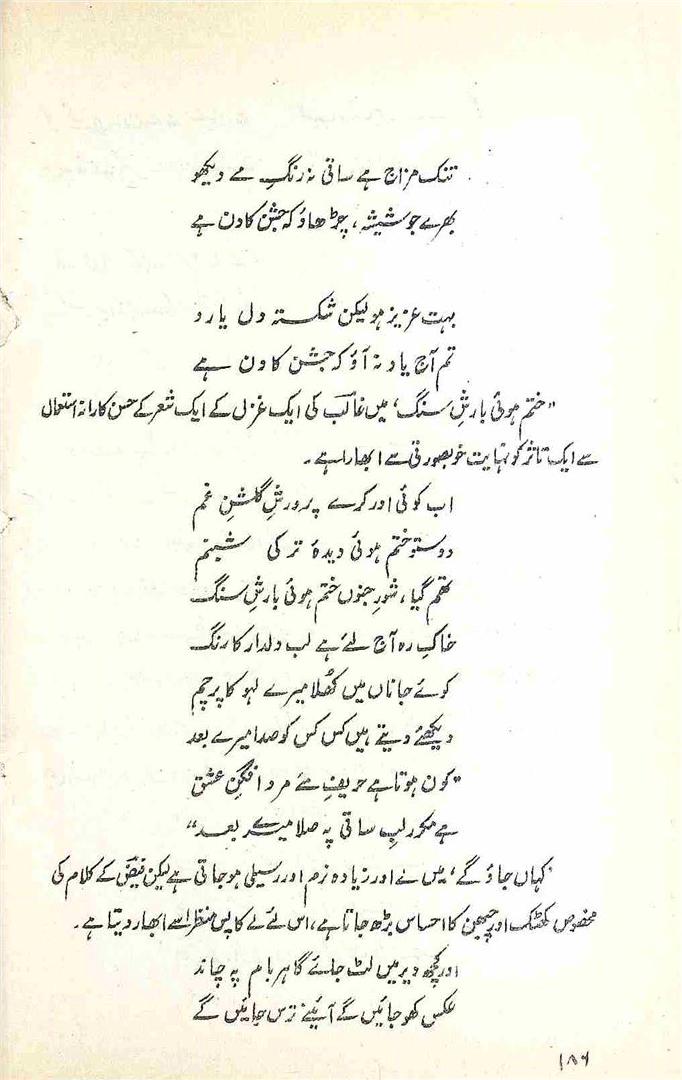 تنک مزاج ہے ساقی نہ رنگِ مے دیکھو
بھرے جو شیشہ، چڑھاؤ کہ جشن کا دن ہے
بہت عزیز ہو لیکن شکستہ دل یارو
تم آج یاد نہ آؤ کہ جشن کا دن ہے
"ختم ہوئی بارشِ سنگ' میں غالبؔ کی ایک غزل کے ایک شعر کے حسن کارانہ استعمال
سے ایک تاثر کو نہایت خوبصورتی سے ابھارا ہے۔
اب کوئی اور کرے پرورشِ گلشنِ غم
دوستو ختم ہوئی دیدۂ تر کی شبنم
تھم گیا، شورِ جنوں ختم ہوئی بارشِ سنگ
خاکِ رہ آج لئے ہے لب دلدار کا رنگ
کوئے جاناں میں کھُلا میرے لہو کا پرچم
دیکھئے دیتے ہیں کس کس کو صدا میرے بعد
"کون ہوتا ہے حریفِ مئے مرد افگنِ عشق
ہے مکرر لبِ ساقی پہ صلا میرے بعد"
'کہاں جاؤ گے' میں نے اور زیادہ نرم اور رسیلی ہو جاتی ہے لیکن فیضؔ کے کلام کی
مخصوص کھٹک اور چبھن کا احساس بڑھ جاتا ہے، اس لئے لے کا پس منظر اسے ابھار دیتا ہے۔
اور کچھ دیر میں لٹ جائے گا ہر بام پہ چاند
عکس کھو جائیں گے آئینے ترس جائیں گے
۱۵۶